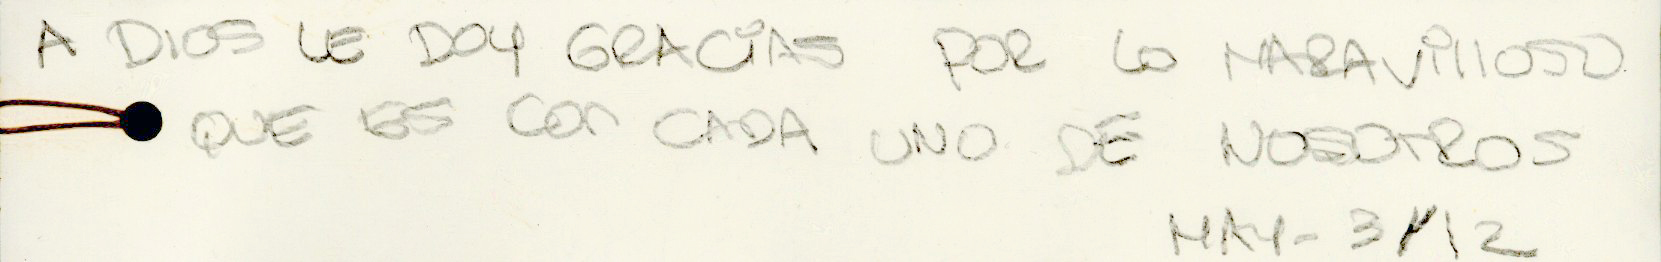 A DIOS LE DOY GRACIAS POR LO MARAVILLOSO
QUE ES CON CADA UNO DE NOSOTROS
MAY-3/12